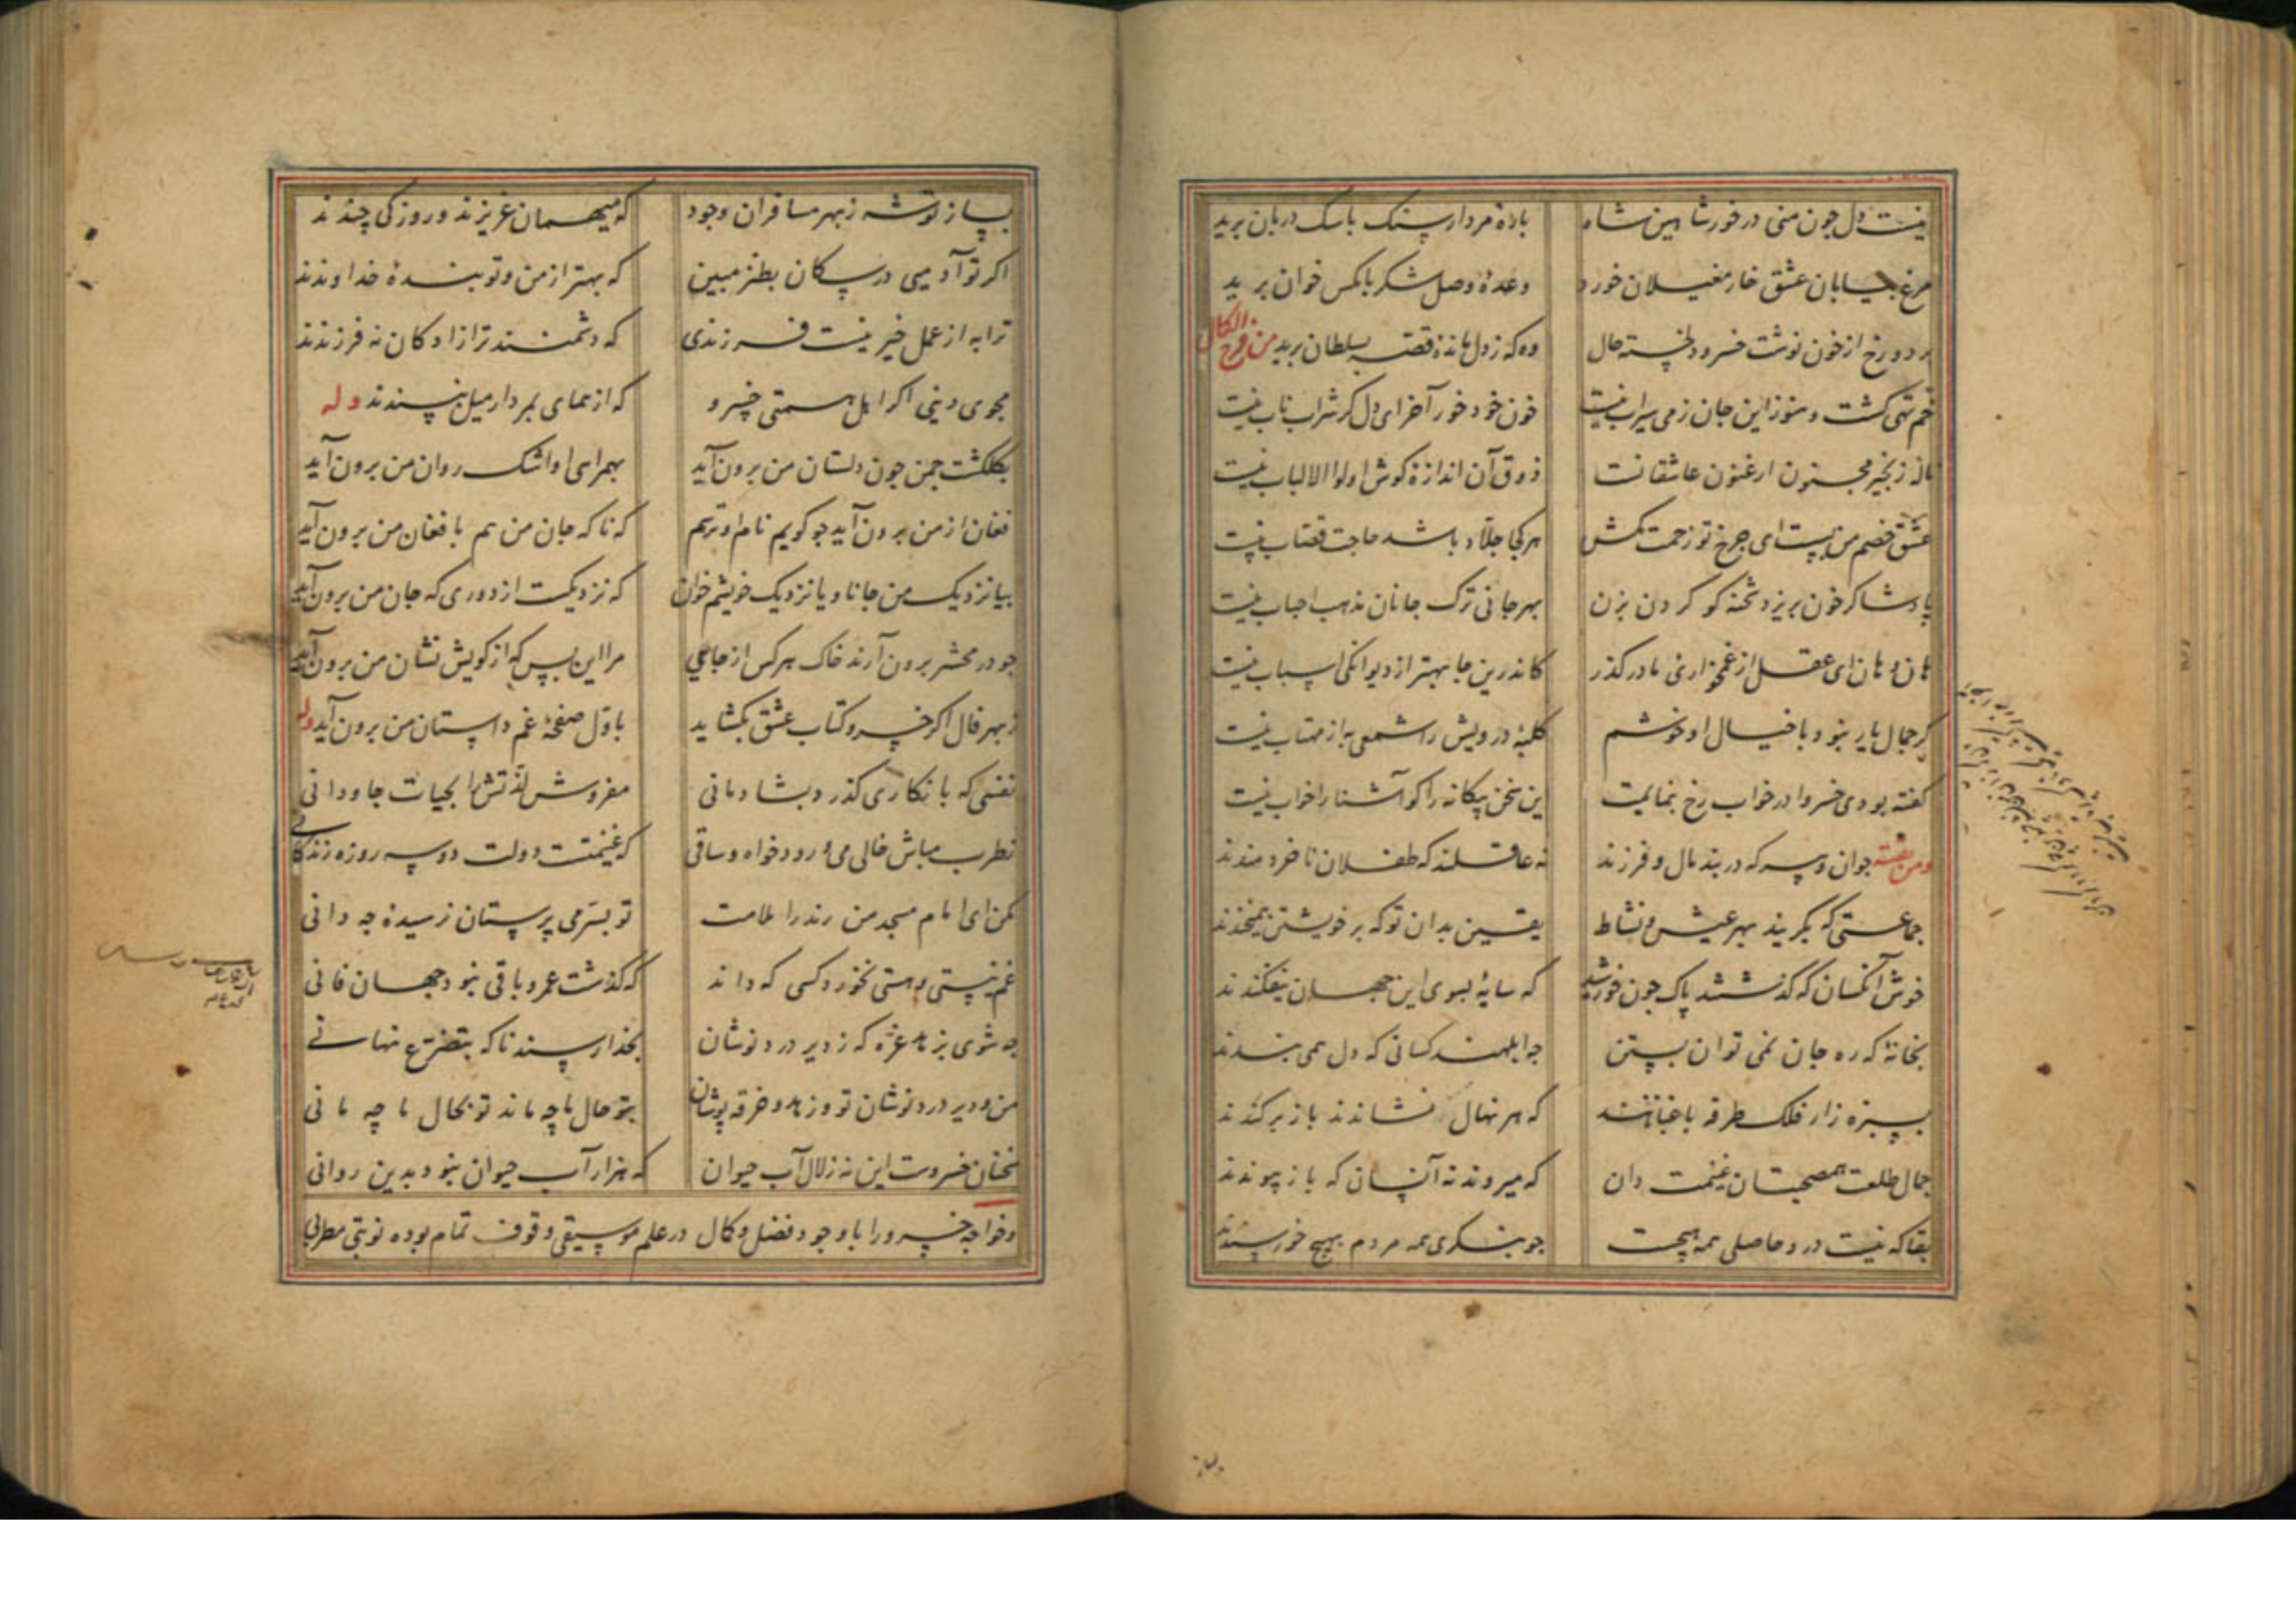 نیست دل چون منی در خور شاهین شاه باده مردار سنک با سک دربان برید
مرغ بیابان عشق خار مغیلان خورد وعدهٔ وصل شکر با مکس خوان برید
بر دو رخ از خون نوشت خسرو دلخسته حال وه که ز دل مانده قصه بسلطان برید من غرة الکمال
خم تهی کشت و هنوز این جان ز می سیراب نیست خون خود خور آخر ای دل کر شراب ناب نیست
نالهٔ زنجیر مجنون ارغنون عاشقانست ذوق آن اندازهٔ کوش اولوا الالباب نیست
عشق خصم من بست ای چرخ تو زحمت مکش هر کجا جلّاد باشد حاجت قصّاب نیست
پادشا کر خون بریزد شحنه کو کردن بزن بهر جانی ترک جانان مذهب احباب نیست
هان و هان ای عقل از غمخواری ما در کذر کاندرین جا بهتر از دیوانکی اسباب نیست
کر جمال یار نبود با خیال او خوشم کلبهٔ درویش را شمعی به از مهتاب نیست
کفته بودی خسروا در خواب رخ بنمایمت این سخن بیکانه را کو آشنا را خواب نیست
ومن بقیته جوان و پیر که در بند مال و فرزند نه عاقلند که طفلان ناخردمندند
جماعتی که بکریند بهر عیش و نشاط یقین بدان تو که بر خویشتن همیخندند
خوش آنکسان که کذشتند پاک چون خورشید که سایهٔ بسوی این جهان نیفکندند
بخانهٔ که ره جان نمی توان بستن چه ابلهند کسانی که دل همی بندند
بسبزه زار فلک طرفه باغبانانند که هر نهال نشاندند باز برکندند
جمال طلعت همصحبتان غنیمت دان که میروند نه آنسان که باز پیوندند
بقا که نیست درو حاصلی همه هیچست چو بنکری همه مردم بهیچ خورسندند
بساز
بساز توشه ز بهر مسافران وجود که میهمان عزیزند و روزکی چندند
اکر تو آدمیی در سکان بطنز مبین که بهتر از من و تو بندهٔ خداوندند
ترا به از عمل خیر نیست فرزندی که دشمنند ترا زادکان نه فرزندند
مجوی دنیی اکر اهل همتی خسرو که از همای بمردار میل نپسندند وله
بکلکشت چمن چون دلستان من برون آید بهمراهی او اشک روان من برون آید
فغان از من برون آید چو کویم نام او ترسم که ناکه جان من هم با فغان من برون آید
بیا نزدیک من جانا و یا نزدیک خویشم خوان که نزدیکست از دوری که جان من برون آید
چو در محشر برون آرند خاک هر کس از جایی مرا این بس که از کویش نشان من برون آید
ز بهر فال اکر خسرو کتاب عشق بکشاید باوّل صفحهٔ غم داستان من برون آید وله
نفسی که با نکاری کذرد بشادمانی مفروش لذتش را بحیات جاودانی
بطرب مباش خالی می و رود خواه و ساقی که غنیمتست دولت دو سه روزه زندکانی
مکن ای امام مسجد من رند را ملامت تو بسرّ می پرستان نرسیدهٔ چه دانی
غم نیستی و هستی نخورد کسی که داند که کذشت عمر و باقی نبود جهان فانی
چه شوی بزهد غره که ز دیر درد نوشان بخدا رسند ناکه بتضرّع نهانی
من و دیر درد نوشان تو و زهد و خرقه پوشان بتو حال ما چه ماند تو بحال ما چه مانی
سخنان خسروست این نه زلال آب حیوان که هزار آب حیوان نبود بدین روانی
و خواجه خسرو را با وجود فضل و کمال در علم موسیقی وقوف تمام بوده نوبتی مطربی